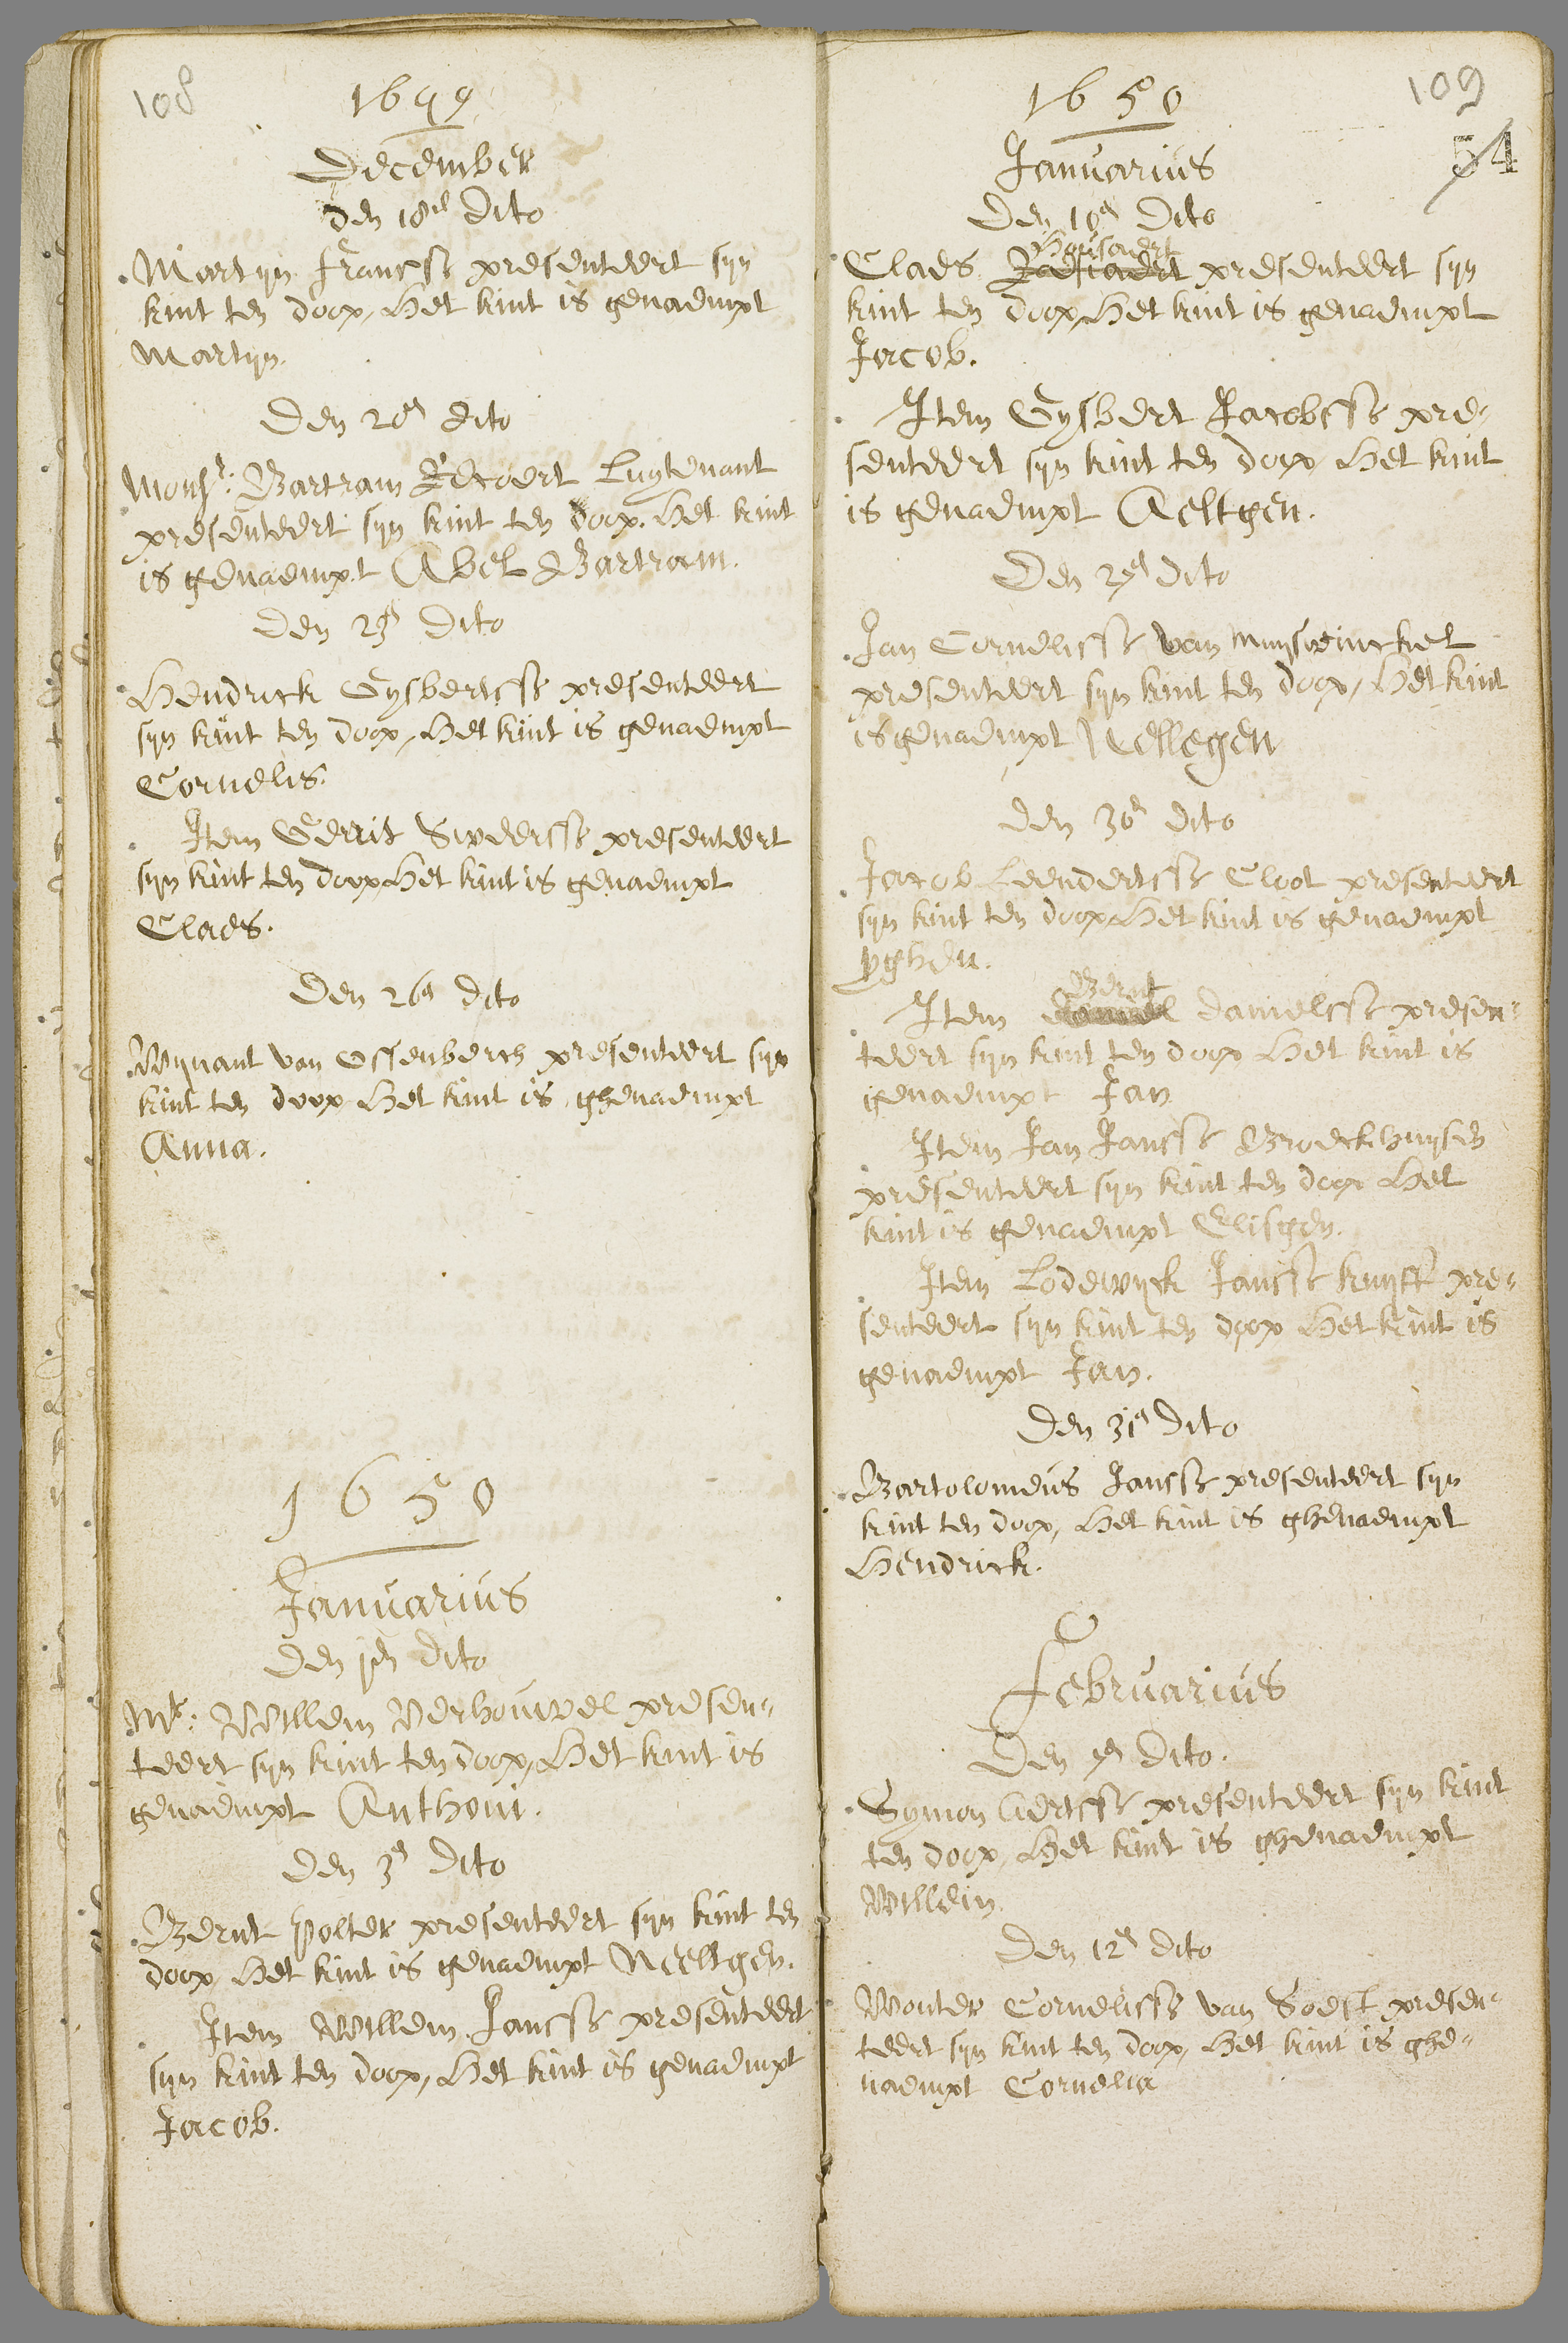 108
1649
December
den 18en dito
Martijn Franss presenteert syn
kint ten doop, Het kint is genaempt
Martijn.
Den 20en dito
Monsr: Bartram Luytenant
presenteert syn kint ten doop. Het kint
is genaempt Abel Bartram.
Den 23en dito
Hendrick Gysbertss presenteert
syn kint ten doop, Het kint is genaempt
Cornelis.
Item Gerrit Sweerss presenteert
syn kint ten doop Het kint is genaempt
Claes.
Den 26en dito
Wynant van Ossenberch presenteert syn
kint ten doop Het kint is ghenaempt
Anna.
1650
Januarius
Den jen dito
Mr: Willem Verhouwel presen-
teert syn kint ten doop, Het kint is
genaempt Anthoni.
Den 3en dito
Bernt Polter presenteert syn kint ten
doop Het kint is genaempt Neeltgen.
Item Willem Janss presenteert
syn kint ten doop, Het kint is genaempt
Jacob.
109
54
1650
Januarius
Den 10en dito
Claes presenteert syn
kint ten doop, Het kint is genaempt
Jacob.
Item Gysbert Jacobss pre-
senteert syn kint ten doop Het kint
is genaempt Aeltgen.
Den 27en dito
Jan Cornelisse van Muyswinckel
presenteert syn kint ten doop, Het kint
is genaempt Nellegen
Den 30en dito
Jacob Leendertss Cloot presenteert
syn kint ten doop Het kint is genaempt
yghen.
Item Bernt Danielss presen-
teert syn kint ten doop Het kint is
genaempt Jan
Item Jan Janss Broeckhuysen
presenteert syn kint ten doop Het
kint is genaempt Elisgen.
Item Lodewyck Janss kuyff pre-
senteert syn kint ten doop Het kint is
genaempt Jan.
Den 31en dito
Bartolomeus Janss presenteert syn
kint ten doop, Het kint is ghenaempt
Hendrick.
Februarius
Den dito.
Symon Aertss presenteert syn kint
ten doop, Het kint is ghenaempt
Willem
Den 12en dito
Wouter Cornelisse van Soest presen-
teert syn kint ten doop, Het kint is ghe-
naempt Cornelia